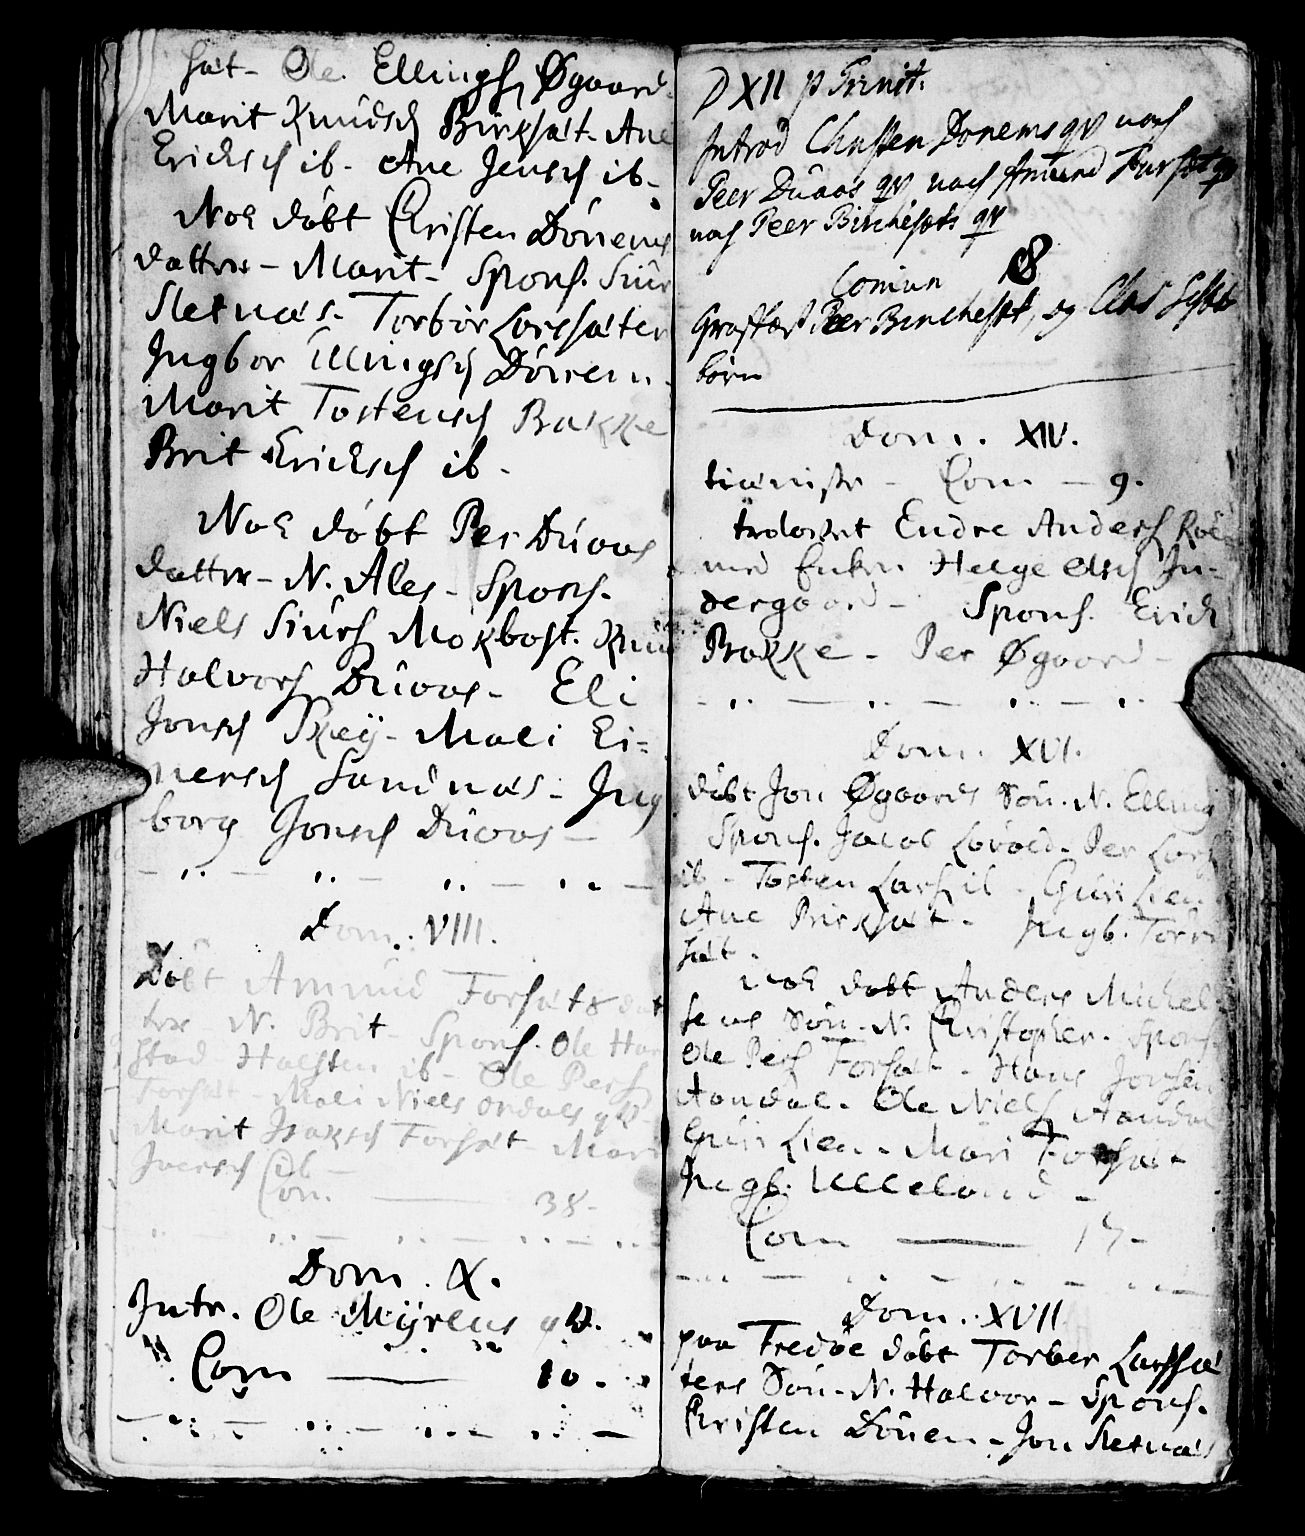 sæt - Ole Ellingss Øgaard
Marit Knudsd Birksæt - Ane
Ericksd ib - Ane Jensd ib -
Nok döbt Christen Dönems
datter - Marit - Spons. Siur
Sletnæs - Torbör Lorssæter
Ingbor Ellingsd Dönem -
Marit Tostensd Bakke
Brit Ericksd ib -
Nok döbt Per Duaas
datter - N. Ales - Spons.
Niels Siurss Mokbost. Knud
Halvors Duaas - Eli
Jonsd Kley - Mali Ei-
nersd Sandnæs - Ing
borg Jonsd Duaas -
Dom. VIII.
Döbt Amund Forsæts dat
ter - N. Brit - Spons. Ole Har
stad - Halsten ib - Ole Perss
Forsæt - Mali Niels Ondals qv -
Marit Isaksd Forsæt - Mari
Iversd ib -
Com. 38 -
Dom. X.
Intr. Ole Myrens qv.
Com 10 -
D XII p Trinit.
Introd Christen Donems qv noch
Peer Duaas qv noch Amund Fursæt qv
noch Peer Birchesets qv
Comun 8
Graffæst Peer Bircheset, og
börn
Dom. XIV.
Com - 9.
trolovet Endre Anderss
med Enken Helge Olsd In-
dergaard - Spons. Erich
Bakke - Per Øgaard -
Dom. XVI.
döbt Jon Øgaards Sön - N. Elling
Spons. Jacob Lovold - Per Larss
ib - Tosten Larss ib - Guri Lien
Ane Birksæt - Ingb. Torri
sæt -
nok döbt Anders Michel
sens Sön - N. Christopher - Spons.
Ole Perss Forsæt - Hans Jonsen
Aandal - Ole Nielss Aandal
Guri Lien - Mari Forsæt -
Ingb. Ulleland -
Com 17 -
Dom. XVII
paa Fredöe döbt Torber Larssæ
ters Sön - N. Halvor - Spons.
Christen Dönem - Jon Sletnæs